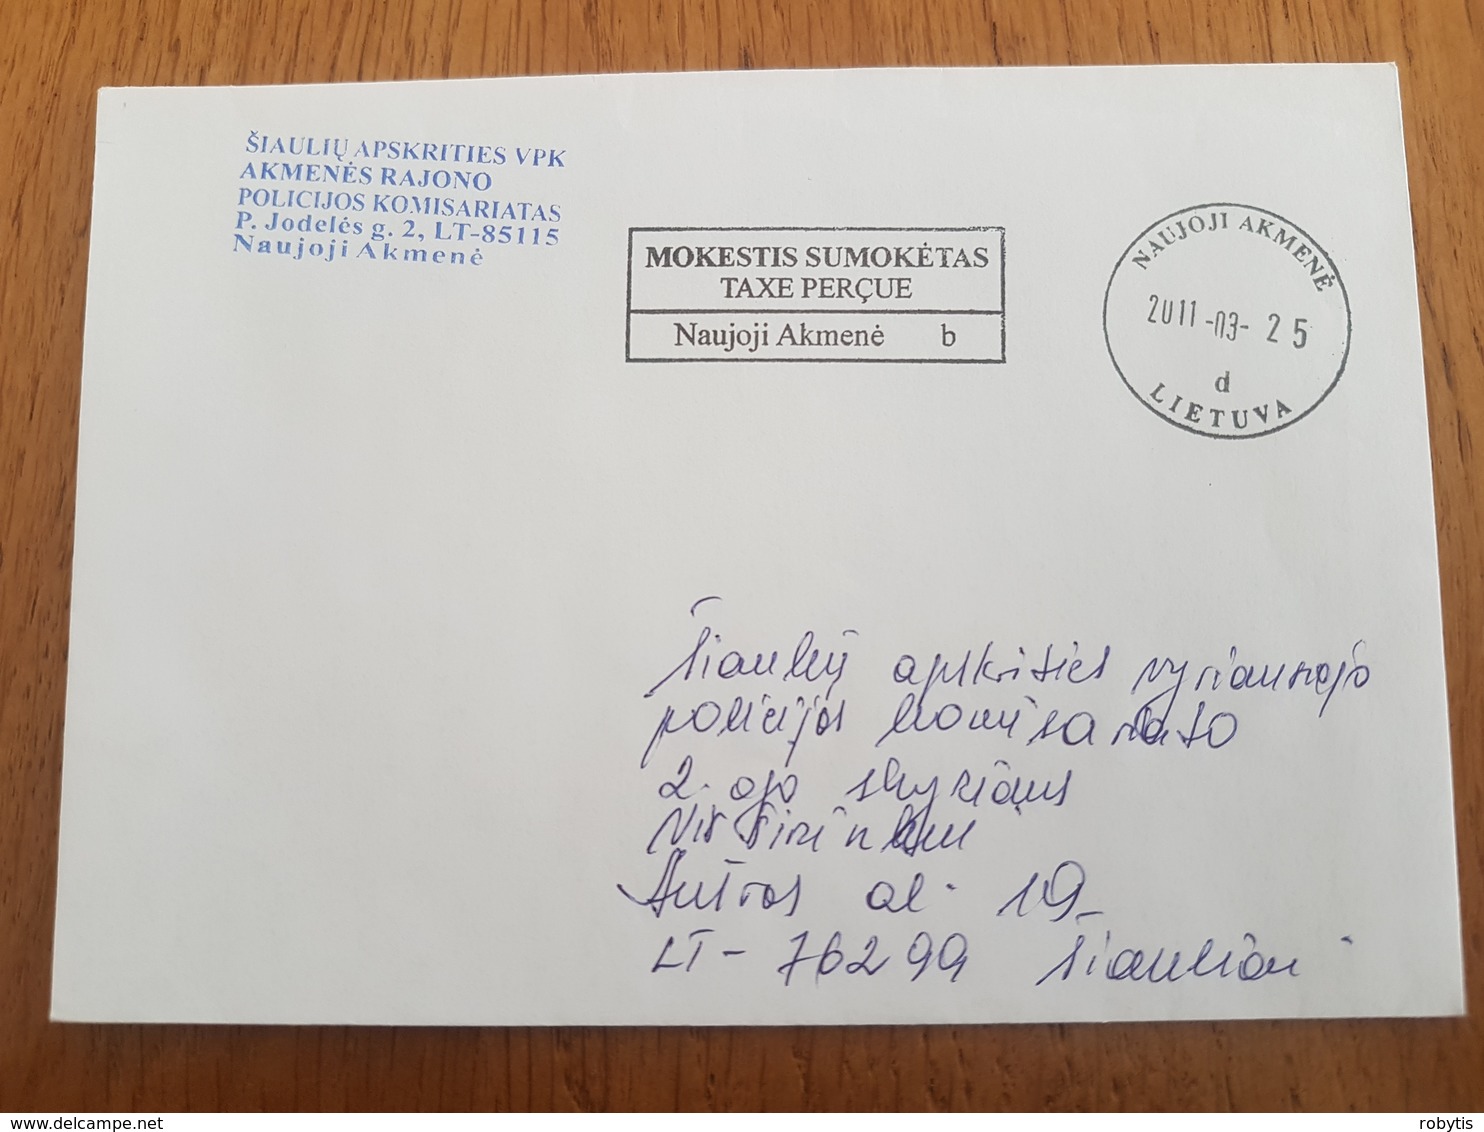 ŠIAULIŲ APSKRITIES VPK
AKMENĖS RAJONO
POLICIJOS KOMISARIATAS
P. Jodelės g. 2, LT-85115
Naujoji Akmenė
MOKESTIS SUMOKĖTAS
TAXE PERÇUE
Naujoji Akmenė b
NAUJOJI AKMENĖ
2011-03-25
d
LIETUVA
Šiaulių apskrities vyriausiojo
policijos komisariato
2-ojo skyriaus
viršininkui
Aušros al. 19
LT-76299 Šiauliai
robytis